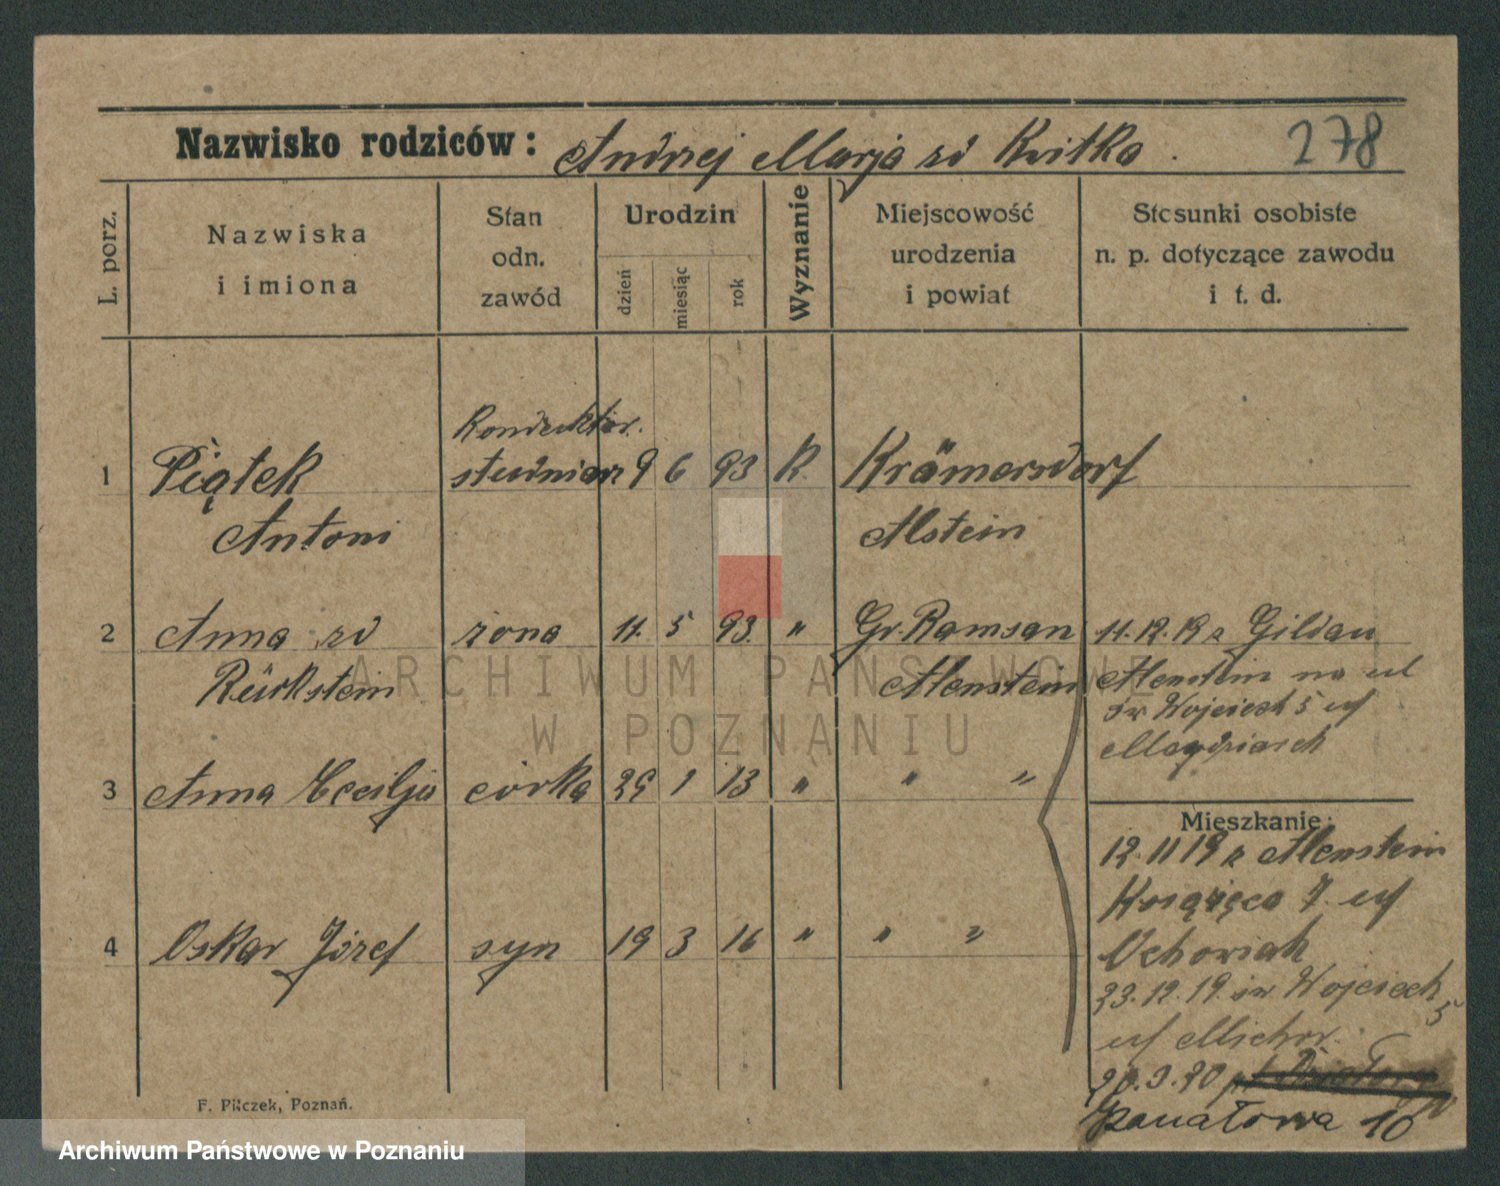 Nazwisko rodziców: Andrzej Marja zd Kvitka. 278
L. porz.
Nazwiska
i imiona
Stan
odn.
zawód
Urodzin
dzień
miesiąc
rok
Wyznanie
Miejscowość
urodzenia
i powiat
Stosunki osobiste
n. p. dotyczące zawodu
i t. d.
1 Piątek
Antoni
Konduktor.
studniarz
9 6 93 K.
Krämersdorf
Alstein
2 Anna zd
Rückstein
żona
11. 5 93. "
Gr. Ramsan
Allenstein
11. 12. 12 z Gillau
Allenstein na ul
św Wojciech 5 uf
3 Anna Cecilja córka 25 1 13 " " "
4 Oskar Józef syn 19 3 16 " " "
Mieszkanie:
12. 11 19 z Allenstein
Książęca 7. uf
23. 12. 19. św. Wojciech 5
uf
20. 3. 20
16
F. Pilczek, Poznań.
ARCHIWUM PAŃSTWOWE
W POZNANIU
Archiwum Państwowe w Poznaniu